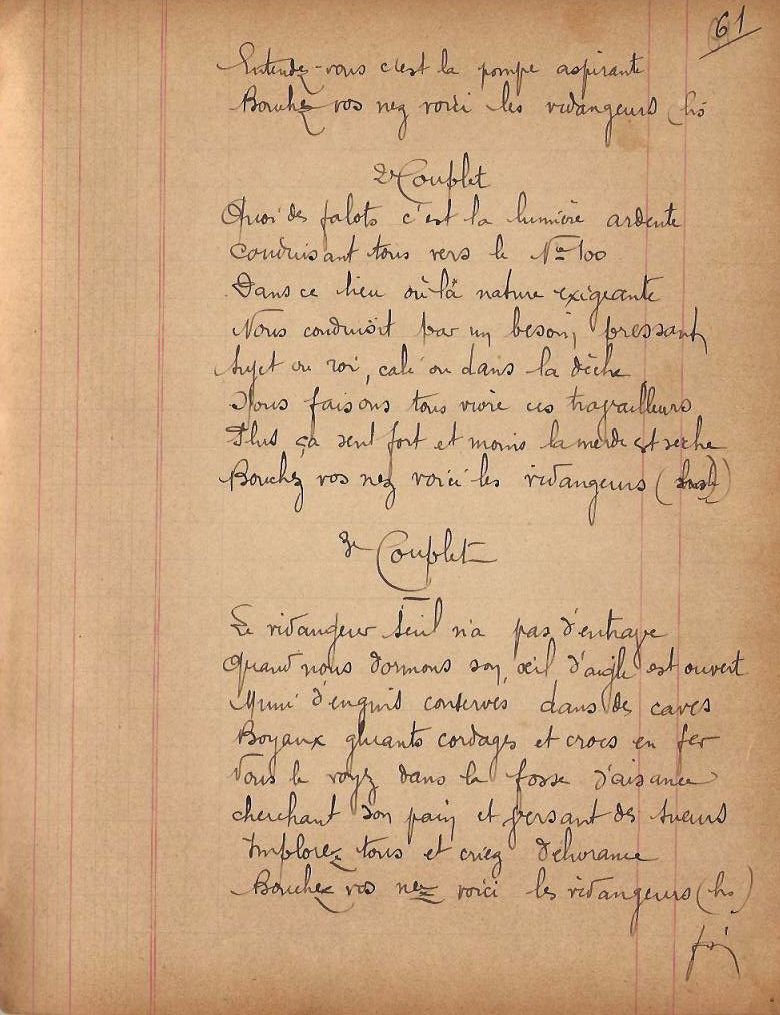 61
Entendez-vous c'est la pompe aspirante
Bouchez vos nez voici les vidangeurs (bis
2e Couplet
Quoi des falots c'est la lumière ardente
Conduisant tous vers le No 100
Dans ce lieu où la nature exigeante
Nous conduisit par un besoin pressant
Sujet ou roi, calé ou dans la dèche
Nous faisons tous vivre ces travailleurs
Plus ça sent fort et moins la merde est sèche
Bouchez vos nez voici les vidangeurs
3e Couplet
Le vidangeur seul n'a pas d'entrave
Quand nous dormons son œil d'aigle est ouvert
Muni d'engins conservés dans des caves
Boyaux gluants cordages et crocs en fer
Vous le voyez dans la fosse d'aisance
cherchant son pain et versant des sueurs
Implorez tous et criez délivrance
Bouchez vos nez voici les vidangeurs (bis)
fin